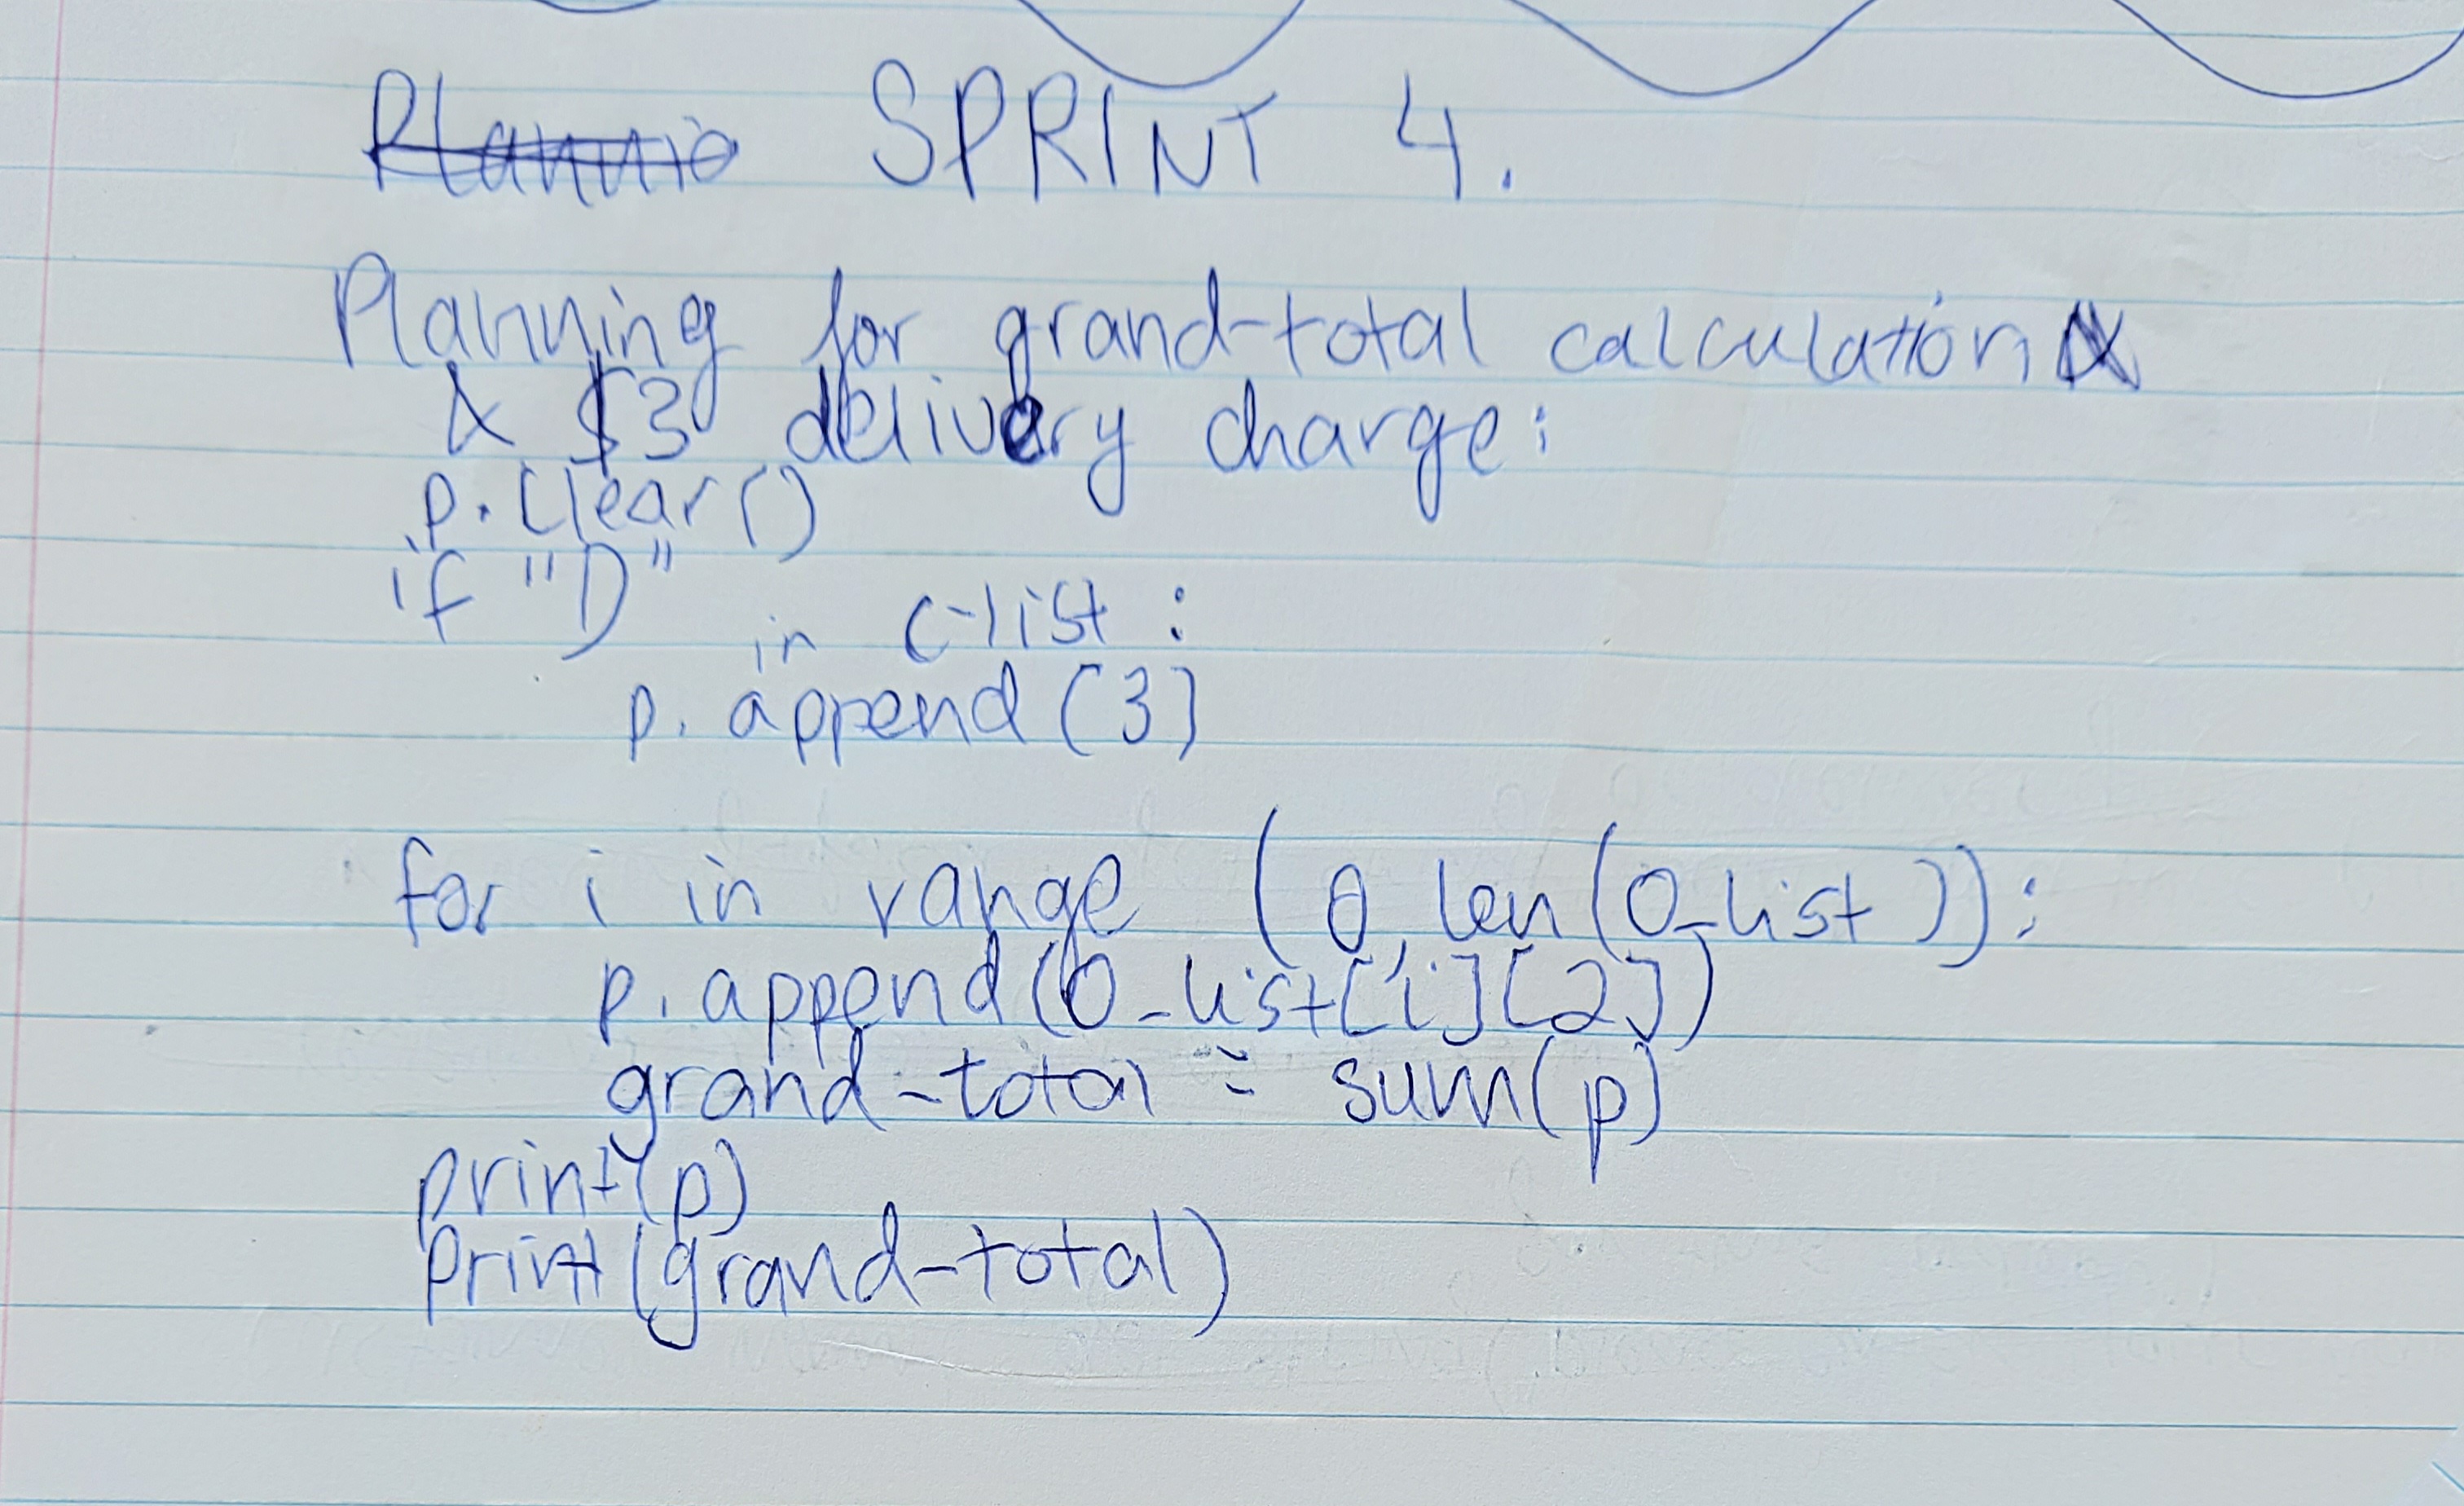 SPRINT 4.
Planning for grand-total calculation
& $3 delivery charge:
p. clear()
if "D" in c-list :
p. append (3)
for i in range (0, len(O_list )):
p. append(O_list[i][2])
grand-total = sum(p)
print(p)
Print(grand-total)